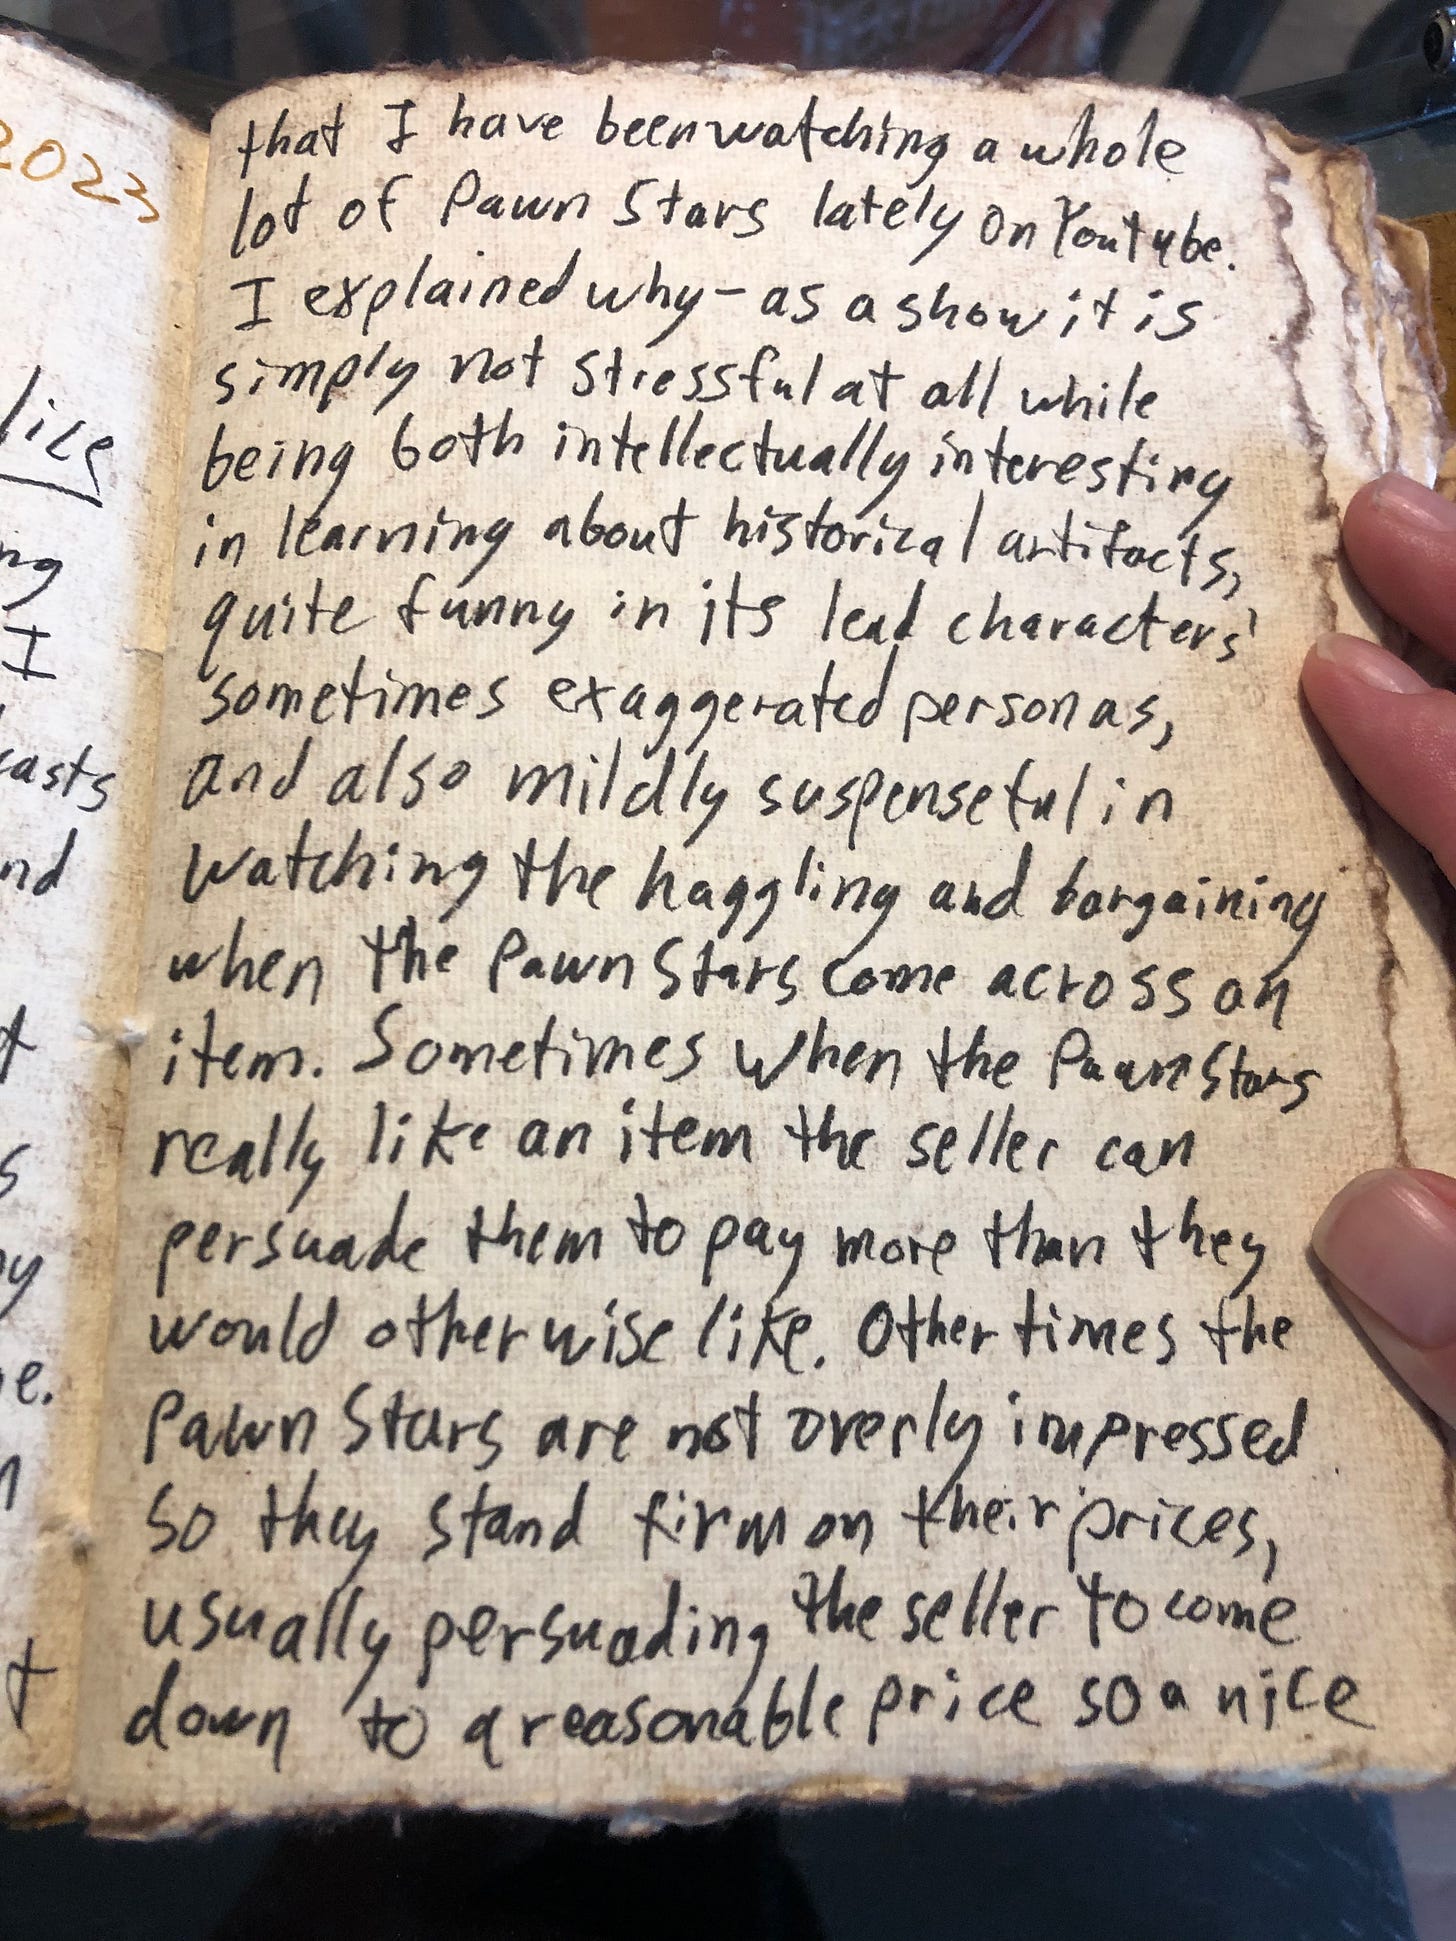 2023
lice
ng
I
casts
nd
s
y
e.
t
that I have been watching a whole
lot of Pawn Stars lately on Youtube.
I explained why - as a show it is
simply not stressful at all while
being both intellectually interesting
in learning about historical artifacts,
quite funny in its lead characters'
sometimes exaggerated personas,
and also mildly suspenseful in
watching the haggling and bargaining
when the Pawn Stars come across an
item. Sometimes when the Pawn Stars
really like an item the seller can
persuade them to pay more than they
would otherwise like. Other times the
Pawn Stars are not overly impressed
so they stand firm on their prices,
usually persuading the seller to come
down to a reasonable price so a nice